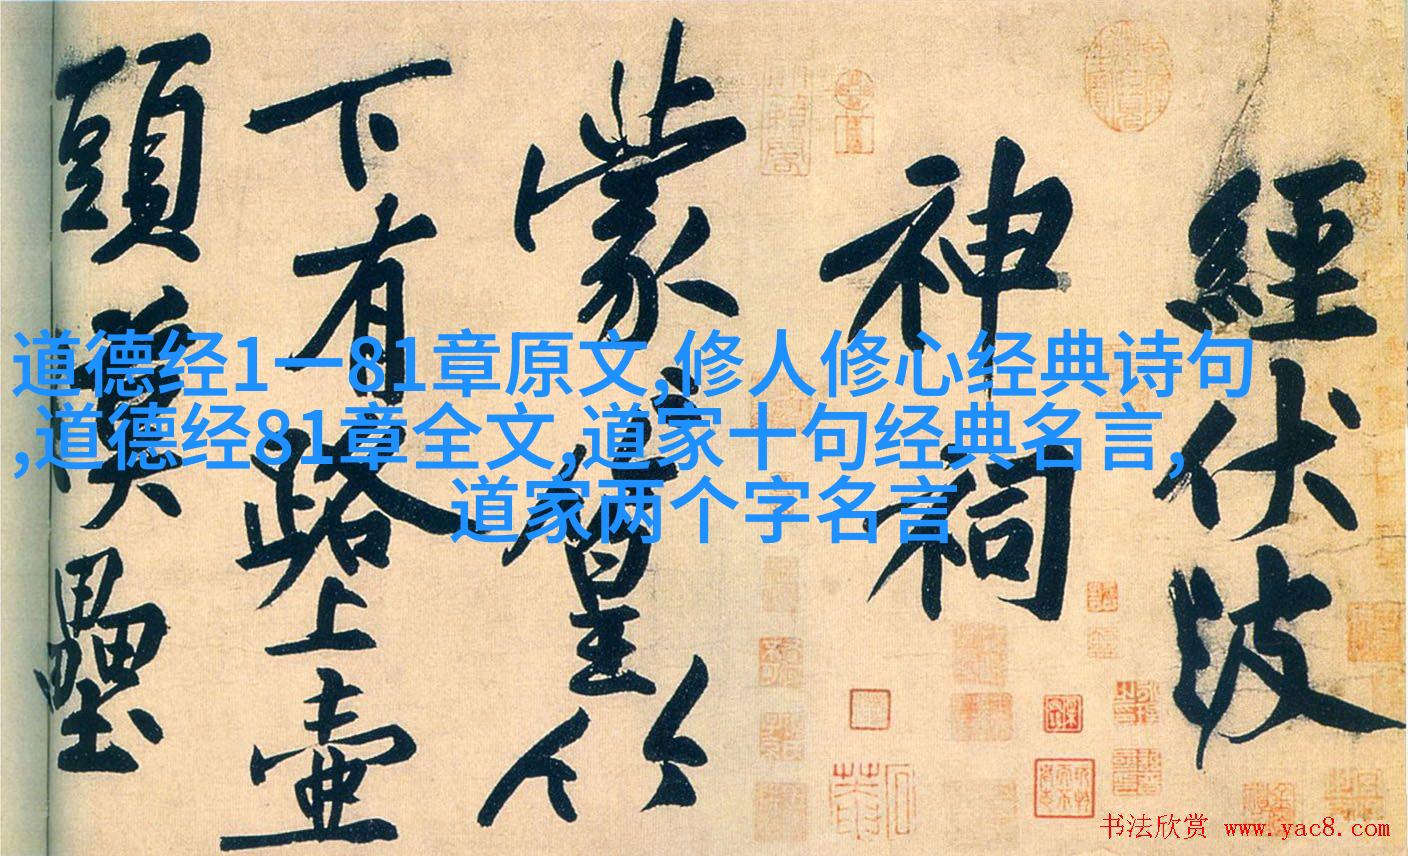 經伏波
神祠
蒙〻篁竹
下有路上壺
頭漢壘
道德经1一81章原文,修人修心经典诗句
,道德经81章全文,道家十句经典名言,
道家两个字名言
书法欣赏 www.yac8.com